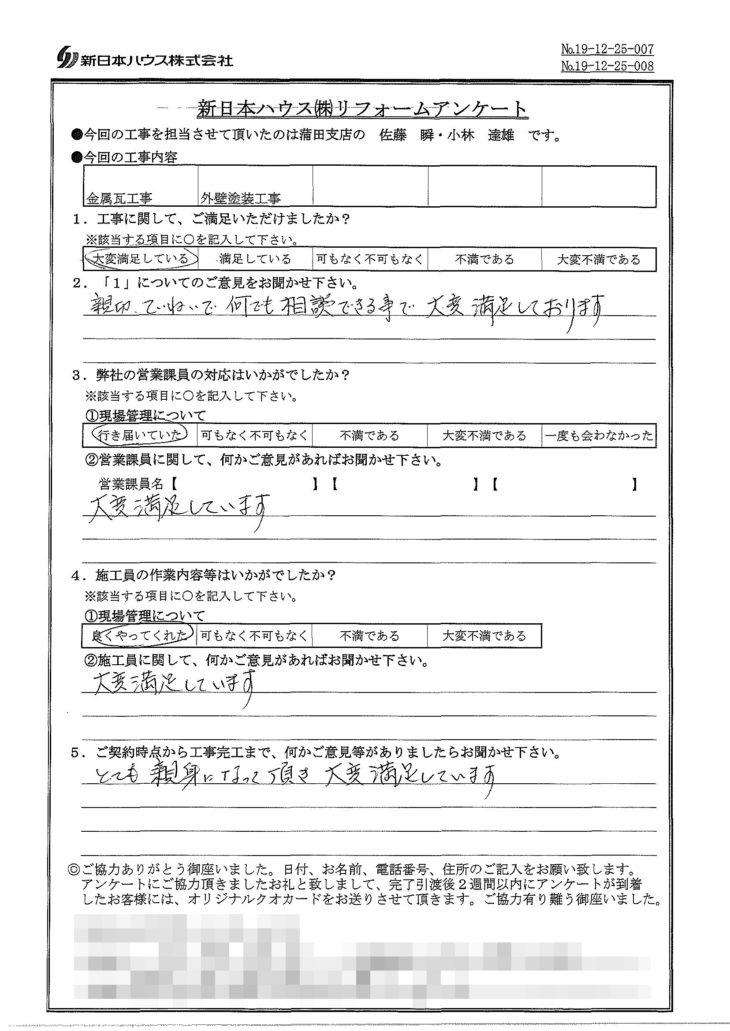 新日本ハウス株式会社
№19-12-25-007
№19-12-25-008
新日本ハウス㈱リフォームアンケート
●今回の工事を担当させて頂いたのは蒲田支店の 佐藤 瞬・小林 達雄 です。
●今回の工事内容
金属瓦工事 外壁塗装工事
1．工事に関して、ご満足いただけましたか？
※該当する項目に○を記入して下さい。
大変満足している 満足している 可もなく不可もなく 不満である 大変不満である
2．「1」についてのご意見をお聞かせ下さい。
親切、ていねいで何でも相談できる事で大変満足しております
3．弊社の営業課員の対応はいかがでしたか？
※該当する項目に○を記入して下さい。
①現場管理について
行き届いていた 可もなく不可もなく 不満である 大変不満である 一度も会わなかった
②営業課員に関して、何かご意見があればお聞かせ下さい。
営業課員名【 】【 】【 】
大変満足しています
4．施工員の作業内容等はいかがでしたか？
※該当する項目に○を記入して下さい。
①現場管理について
良くやってくれた 可もなく不可もなく 不満である 大変不満である
②施工員に関して、何かご意見があればお聞かせ下さい。
大変満足しています
5．ご契約時点から工事完工まで、何かご意見等がありましたらお聞かせ下さい。
とても親身になって頂き大変満足しています
◎ご協力ありがとう御座いました。日付、お名前、電話番号、住所のご記入をお願い致します。
アンケートにご協力頂きましたお礼と致しまして、完了引渡後２週間以内にアンケートが到着
したお客様には、オリジナルクオカードをお送りさせて頂きます。ご協力有り難う御座いました。